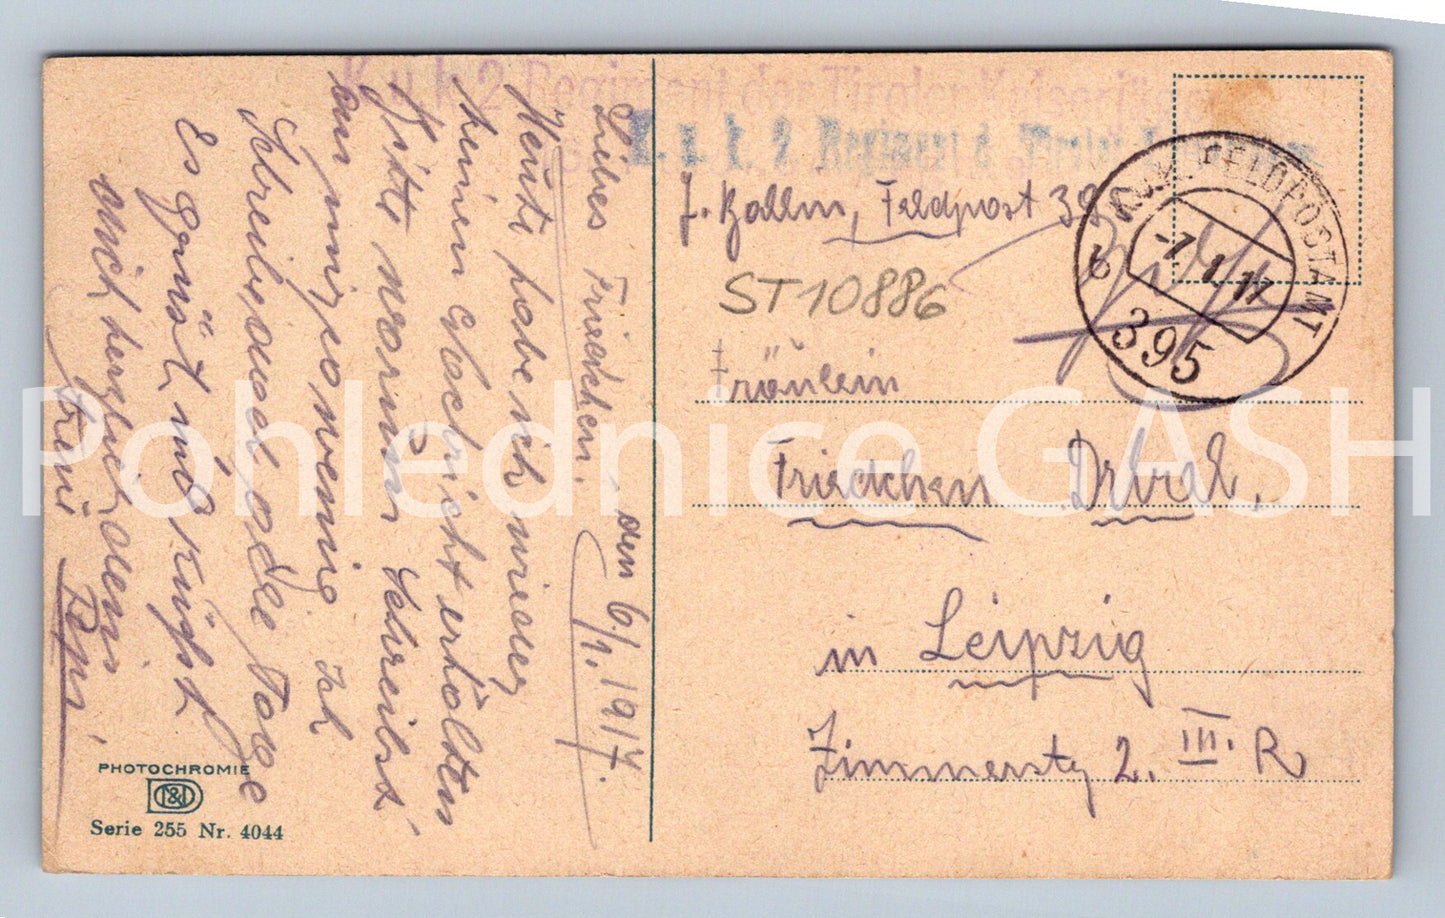 K. u. k. 2. Regiment der Tiroler Kaiserjäger
K. u. k. 2 Regiment d. Tiroler
Feldpost 39
K.u.K. FELDPOSTAMT
-7. 1. 17
b
395
ST10886
Fräulein
Friedchen Drbral,
in Leipzig
Zimmerstr 2. III. R
den 6/1. 1917.
Liebes Friedchen.
Heute habe ich wieder
keinen Nachricht erhalten
Bitte warum schreibst
an mir so wenig Ich
Schreibe auch alle Tage
Es grüßt und küßt
dich herzlich dein
Pepi.
PHOTOCHROMIE
Serie 255 Nr. 4044
Pohlednice GASH